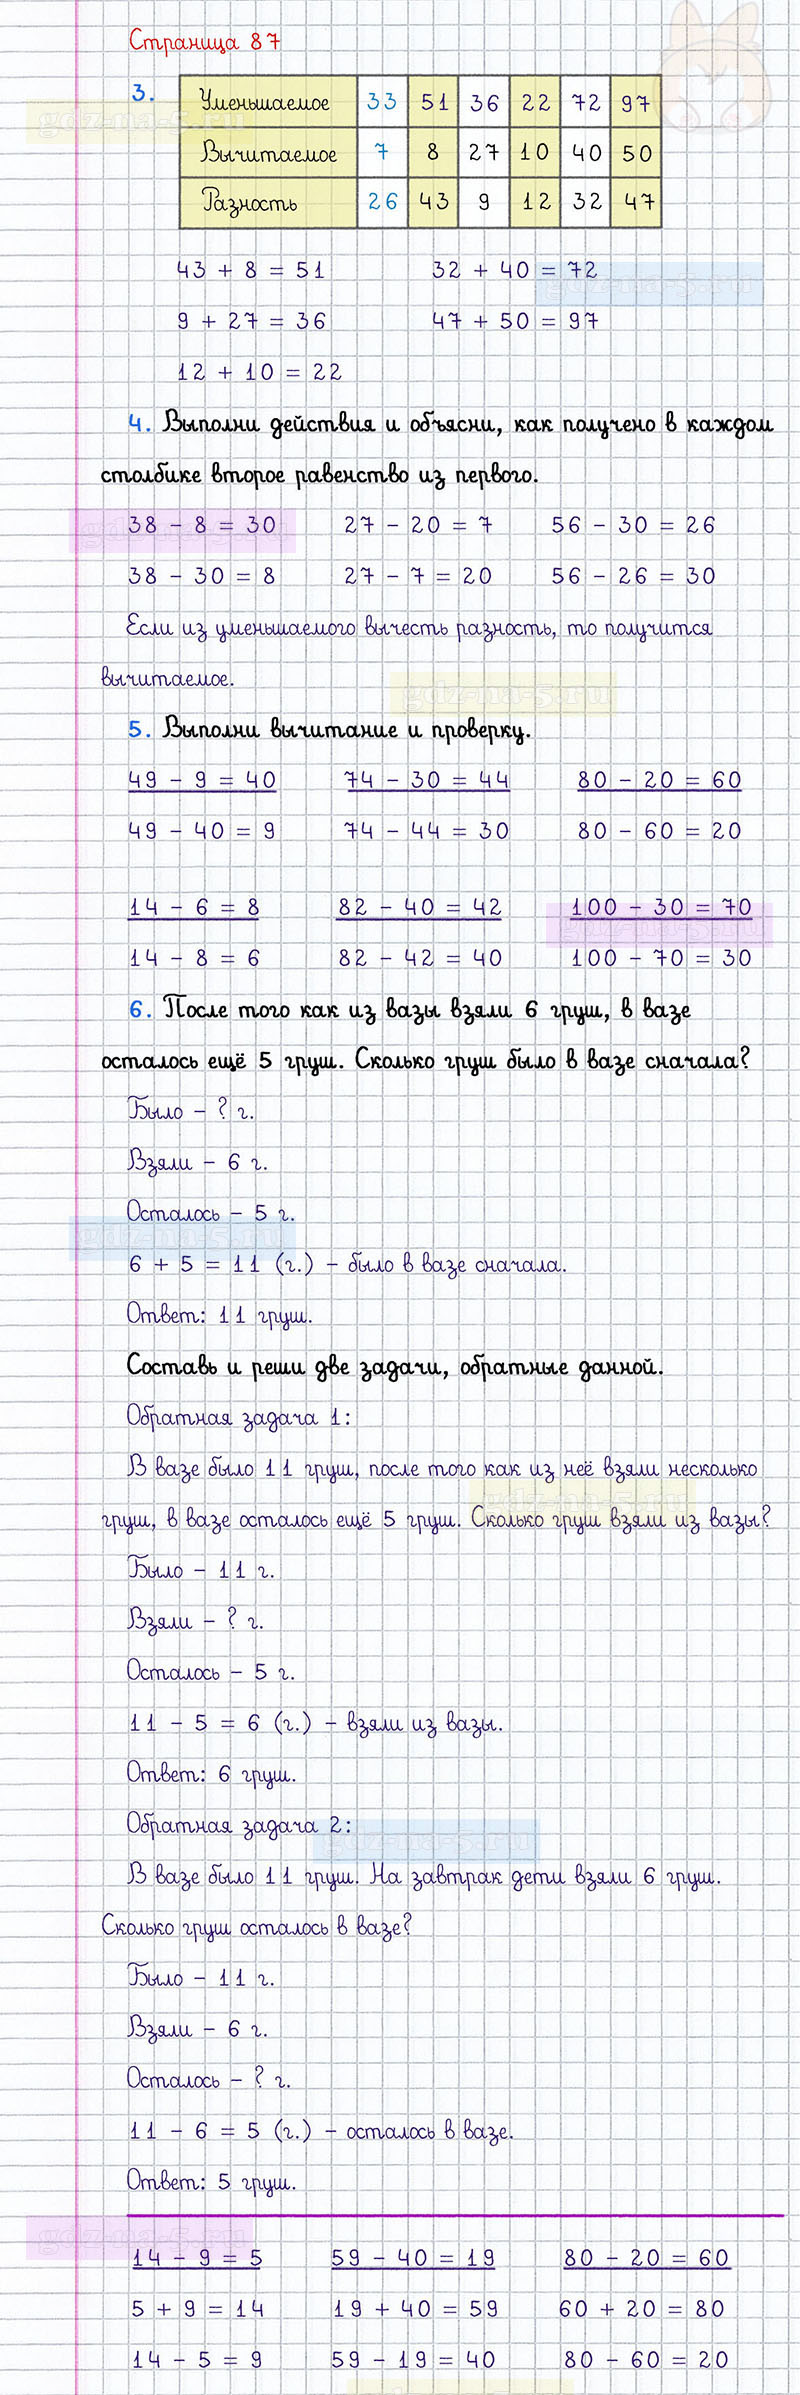 Страница 87
3. Уменьшаемое 33 51 36 22 72 97
Вычитаемое 7 8 27 10 40 50
Разность 26 43 9 12 32 47
gdz-na-5.ru
43 + 8 = 51 32 + 40 = 72
gdz-na-5.ru
9 + 27 = 36 47 + 50 = 97
12 + 10 = 22
4. Выполни действия и объясни, как получено в каждом
столбике второе равенство из первого.
38 - 8 = 30 27 - 20 = 7 56 - 30 = 26
gdz-na-5.ru
38 - 30 = 8 27 - 7 = 20 56 - 26 = 30
Если из уменьшаемого вычесть разность, то получится
вычитаемое.
gdz-na-5.ru
5. Выполни вычитание и проверку.
49 - 9 = 40 74 - 30 = 44 80 - 20 = 60
49 - 40 = 9 74 - 44 = 30 80 - 60 = 20
14 - 6 = 8 82 - 40 = 42 100 - 30 = 70
gdz-na-5.ru
14 - 8 = 6 82 - 42 = 40 100 - 70 = 30
6. После того как из вазы взяли 6 груш, в вазе
осталось ещё 5 груш. Сколько груш было в вазе сначала?
Было - ? г.
Взяли - 6 г.
Осталось - 5 г.
gdz-na-5.ru
6 + 5 = 11 (г.) - было в вазе сначала.
Ответ: 11 груш.
Составь и реши две задачи, обратные данной.
Обратная задача 1:
В вазе было 11 груш, после того как из неё взяли несколько
gdz-na-5.ru
груш, в вазе осталось ещё 5 груш. Сколько груш взяли из вазы?
Было - 11 г.
Взяли - ? г.
Осталось - 5 г.
11 - 5 = 6 (г.) - взяли из вазы.
Ответ: 6 груш.
Обратная задача 2:
gdz-na-5.ru
В вазе было 11 груш. На завтрак дети взяли 6 груш.
Сколько груш осталось в вазе?
Было - 11 г.
Взяли - 6 г.
Осталось - ? г.
11 - 6 = 5 (г.) - осталось в вазе.
Ответ: 5 груш.
gdz-na-5.ru
14 - 9 = 5 59 - 40 = 19 80 - 20 = 60
5 + 9 = 14 19 + 40 = 59 60 + 20 = 80
14 - 5 = 9 59 - 19 = 40 80 - 60 = 20